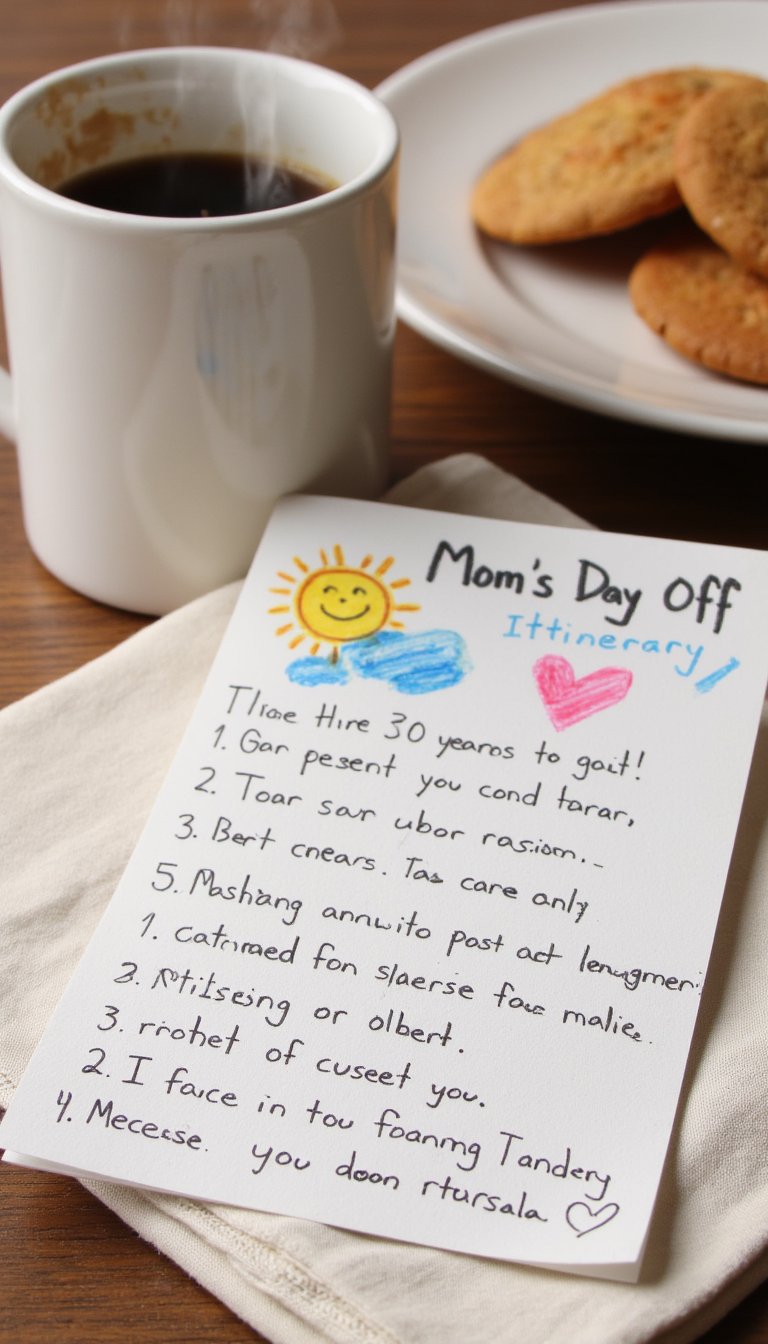 Mom's Day Off
Ittinerary
Tlioe Hire 30 yearos to gait!
1. Gar pesent you cond tarar,
2. Toar sour ubor rasiom..
3. Bert cnears. Tas care anly
5. Mashiang annwito post act
1. catnraed fon slaerse foue malie.
3. or olbert.
3. riohet of cuseet you.
2. I faice in tou foanmg Tandery
4. Mecesse. you doon rtursala